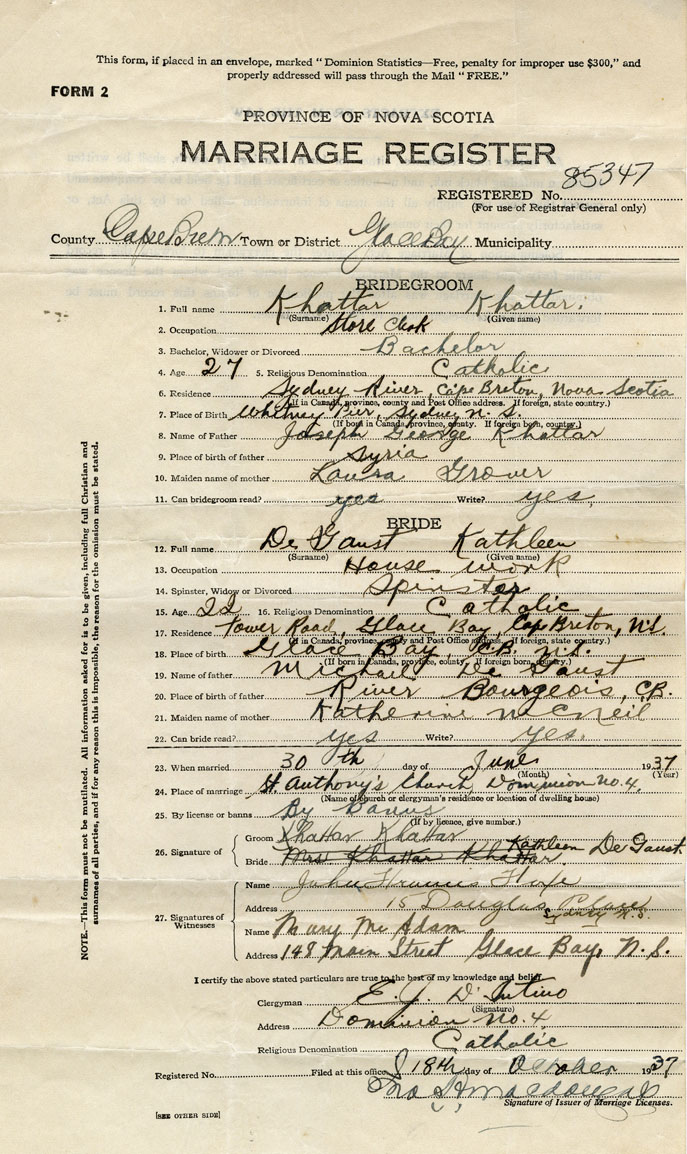 This form, if placed in an envelope, marked "Dominion Statistics—Free, penalty for improper use $300," and
properly addressed will pass through the Mail "FREE."
FORM 2
PROVINCE OF NOVA SCOTIA
MARRIAGE REGISTER
REGISTERED No. 85347
(For use of Registrar General only)
County Cape Breton Town or District Glace Bay Municipality
BRIDEGROOM
1. Full name Khattar Khattar.
(Surname) (Given name)
2. Occupation Store Clerk
3. Bachelor, Widower or Divorced Bachelor
4. Age 27 5. Religious Denomination Catholic
6. Residence Sydney River, Cape Breton, Nova Scotia
(If in Canada, province, county and Post Office address. If foreign, state country.)
7. Place of Birth Whitney Pier, Sydney N. S.
(If born in Canada, province, county. If foreign born, country.)
8. Name of Father Joseph George Khattar
9. Place of birth of father Syria
10. Maiden name of mother Laura Grover
11. Can bridegroom read? yes Write? yes,
BRIDE
12. Full name De Gaust Kathleen
(Surname) (Given name)
13. Occupation House work
14. Spinster, Widow or Divorced Spinster
15. Age 22 16. Religious Denomination Catholic
17. Residence Tower Road, Glace Bay, Cape Breton, N.S.
(If in Canada, province, county and Post Office address. If foreign, state country.)
18. Place of birth Glace Bay, C.B. N.S.
(If born in Canada, province, county. If foreign born, country.)
19. Name of father Michael De Gaust
20. Place of birth of father River Bourgeois, C.B.
21. Maiden name of mother Katherine McNeil
22. Can bride read? yes Write? yes.
23. When married 30 th day of June 1937
(Month) (Year)
24. Place of marriage St Anthony's Church, Dominion No. 4,
(Name of church or clergyman's residence or location of dwelling house)
25. By license or banns By Banns
(If by licence, give number.)
26. Signature of
Groom Khattar Khattar
Bride Mrs Khattar Khattar. Kathleen De Gaust
27. Signatures of Witnesses
Name John
Address 15 Douglas Place
Sydney N.S.
Name Mary Mc Adam
Address 148 Main Street Glace Bay, N. S.
I certify the above stated particulars are true to the best of my knowledge and belief
Clergyman E. J. D'Intino
(Signature)
Address Dominion No. 4
Religious Denomination Catholic
Registered No. Filed at this office 18th day of October 1937
Macdougal
Signature of Issuer of Marriage Licenses.
[SEE OTHER SIDE]
NOTE.—This form must not be mutilated. All information asked for is to be given, including full Christian and
surnames of all parties, and if for any reason this is impossible, the reason for the omission must be stated.